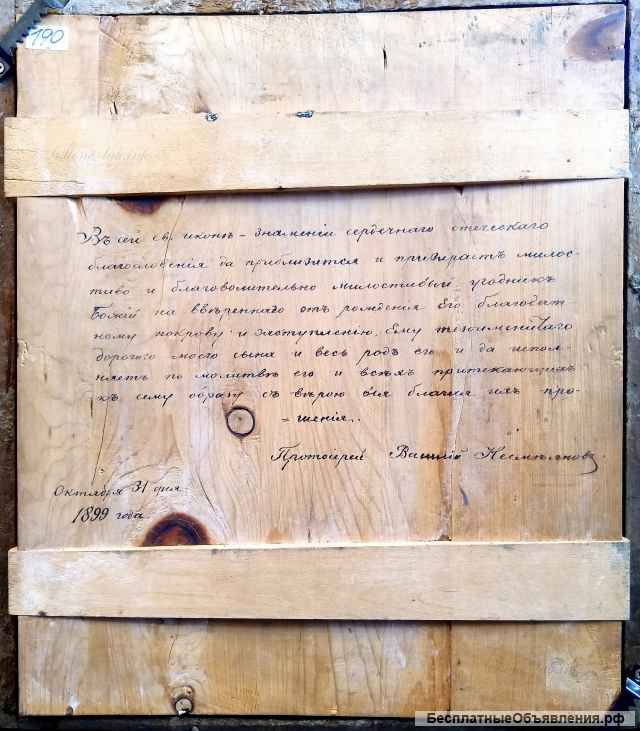 190
Въ сей св. иконѣ – знаменіи сердечнаго отеческаго
благословенія да приблизится и призираетъ милос-
тиво и благоволительно милостивый угодникъ
Божій на ввѣреннаго отъ рожденія Его благодат
ному покрову и заступленію Ему тезоименитаго
дорогого моего сына и весь родъ его и да испол-
няетъ по молитвѣ его и всѣхъ притекающихъ
къ сему образу съ вѣрою вся благія ихъ про-
= шенія..
Протоіерей Василій Несмѣяновъ
Октября 31 дня
1899 года.
БесплатныеОбъявления.рф